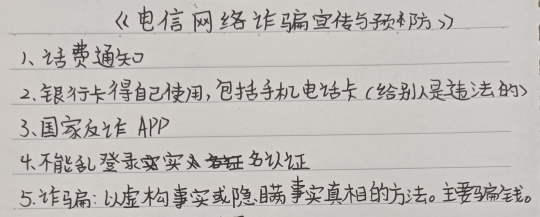 《电信网络诈骗宣传与预防》
1、话费通知
2、银行卡得自己使用,包括手机电话卡(给别人是违法的)
3、国家反诈 APP
4、不能乱登录实名认证
5、诈骗:以虚构事实或隐瞒事实真相的方法。主要骗钱。